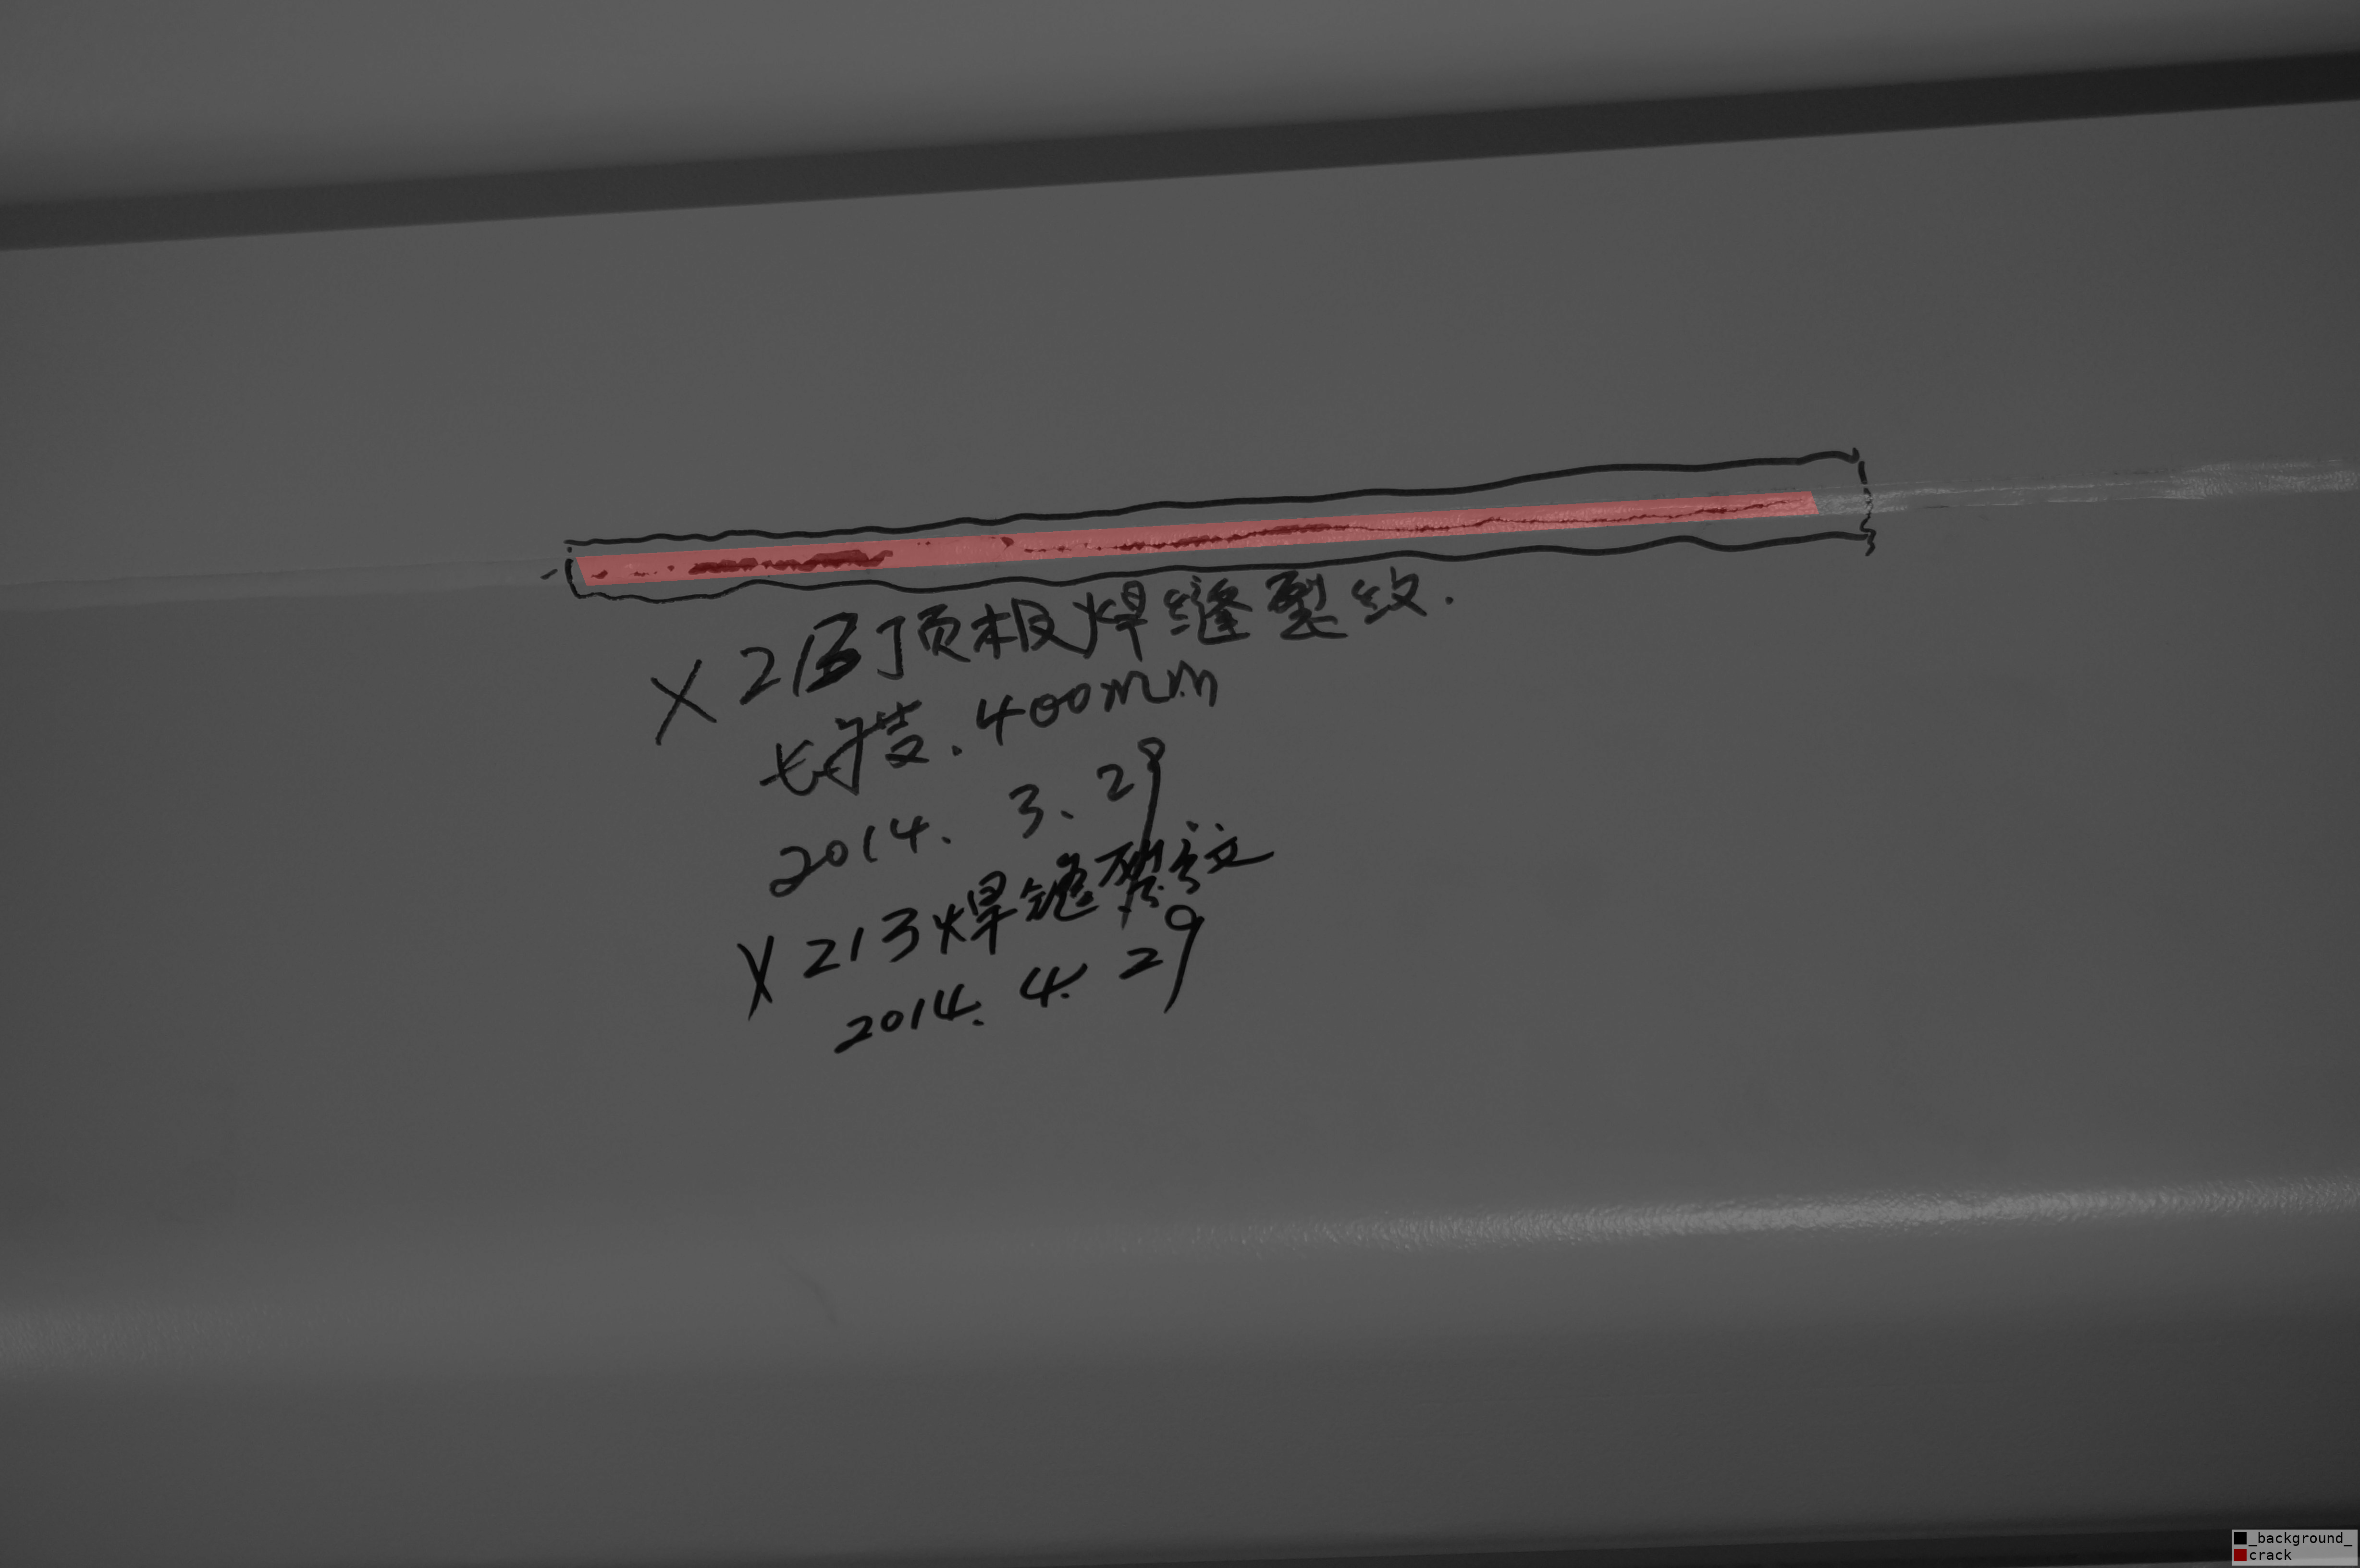 X213顶板焊缝裂纹.
长度.400mm
2014. 3. 29
X213焊缝裂纹
2014. 4. 29
_background_
crack